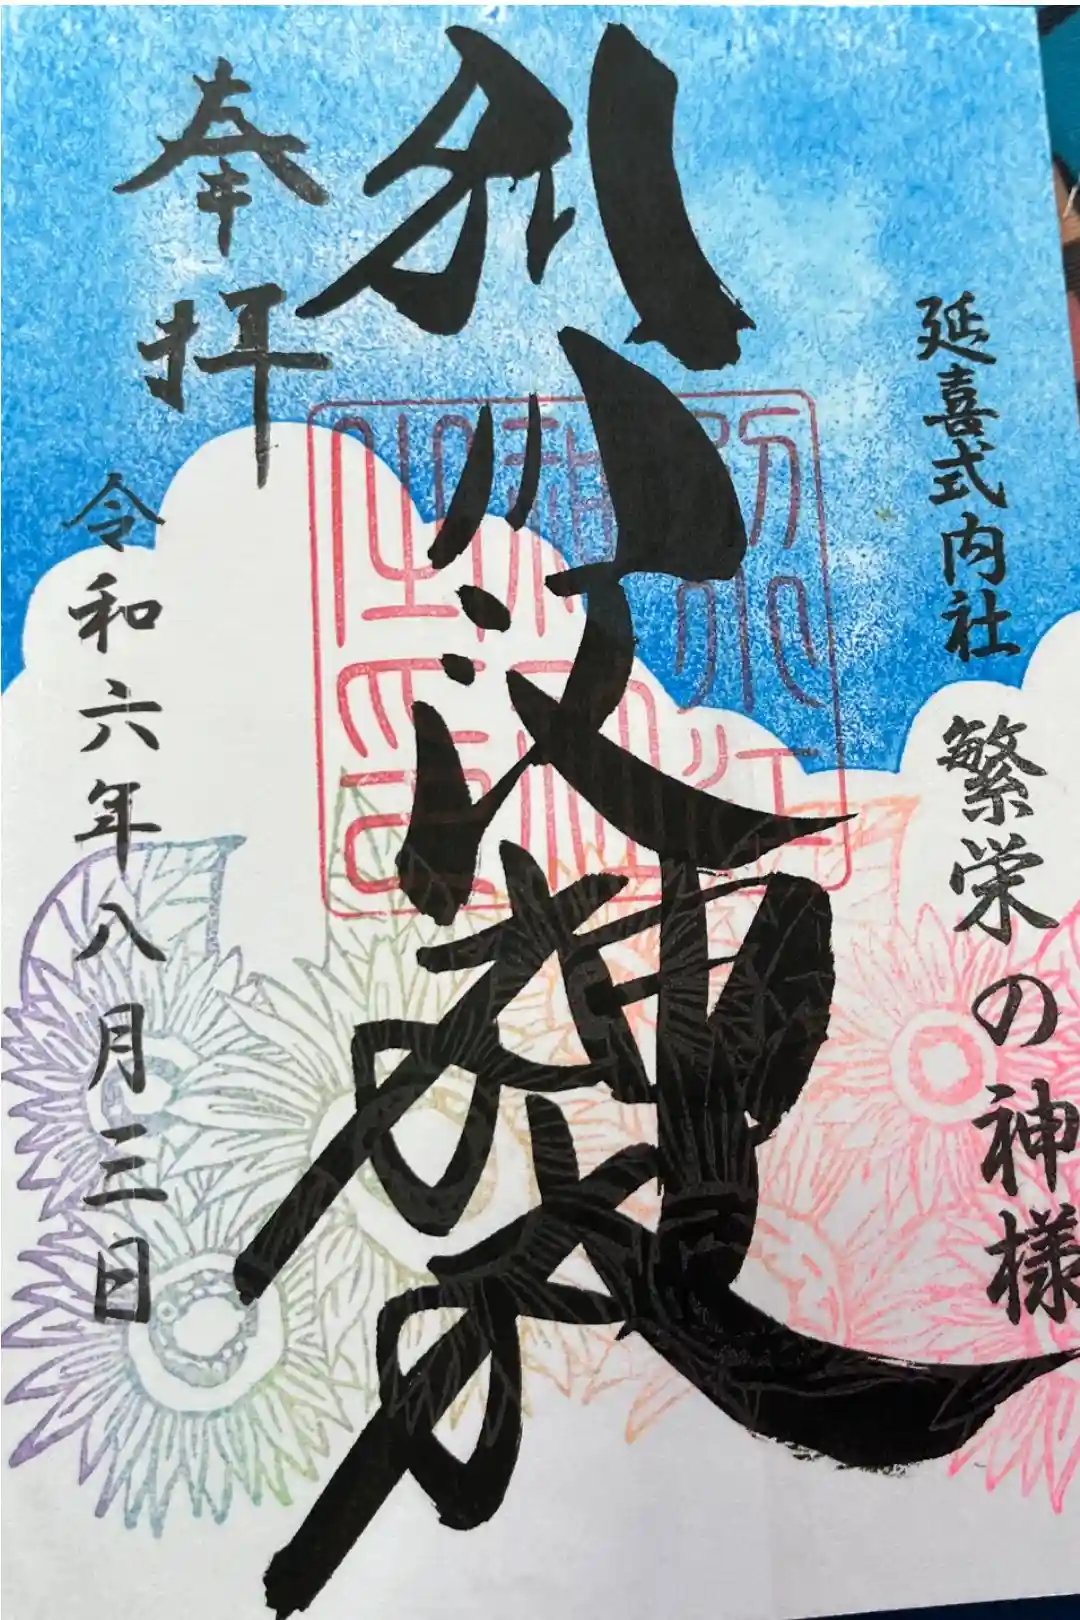 延喜式内社 繁栄の神様
別小江神社
奉拝
令和六年八月三日